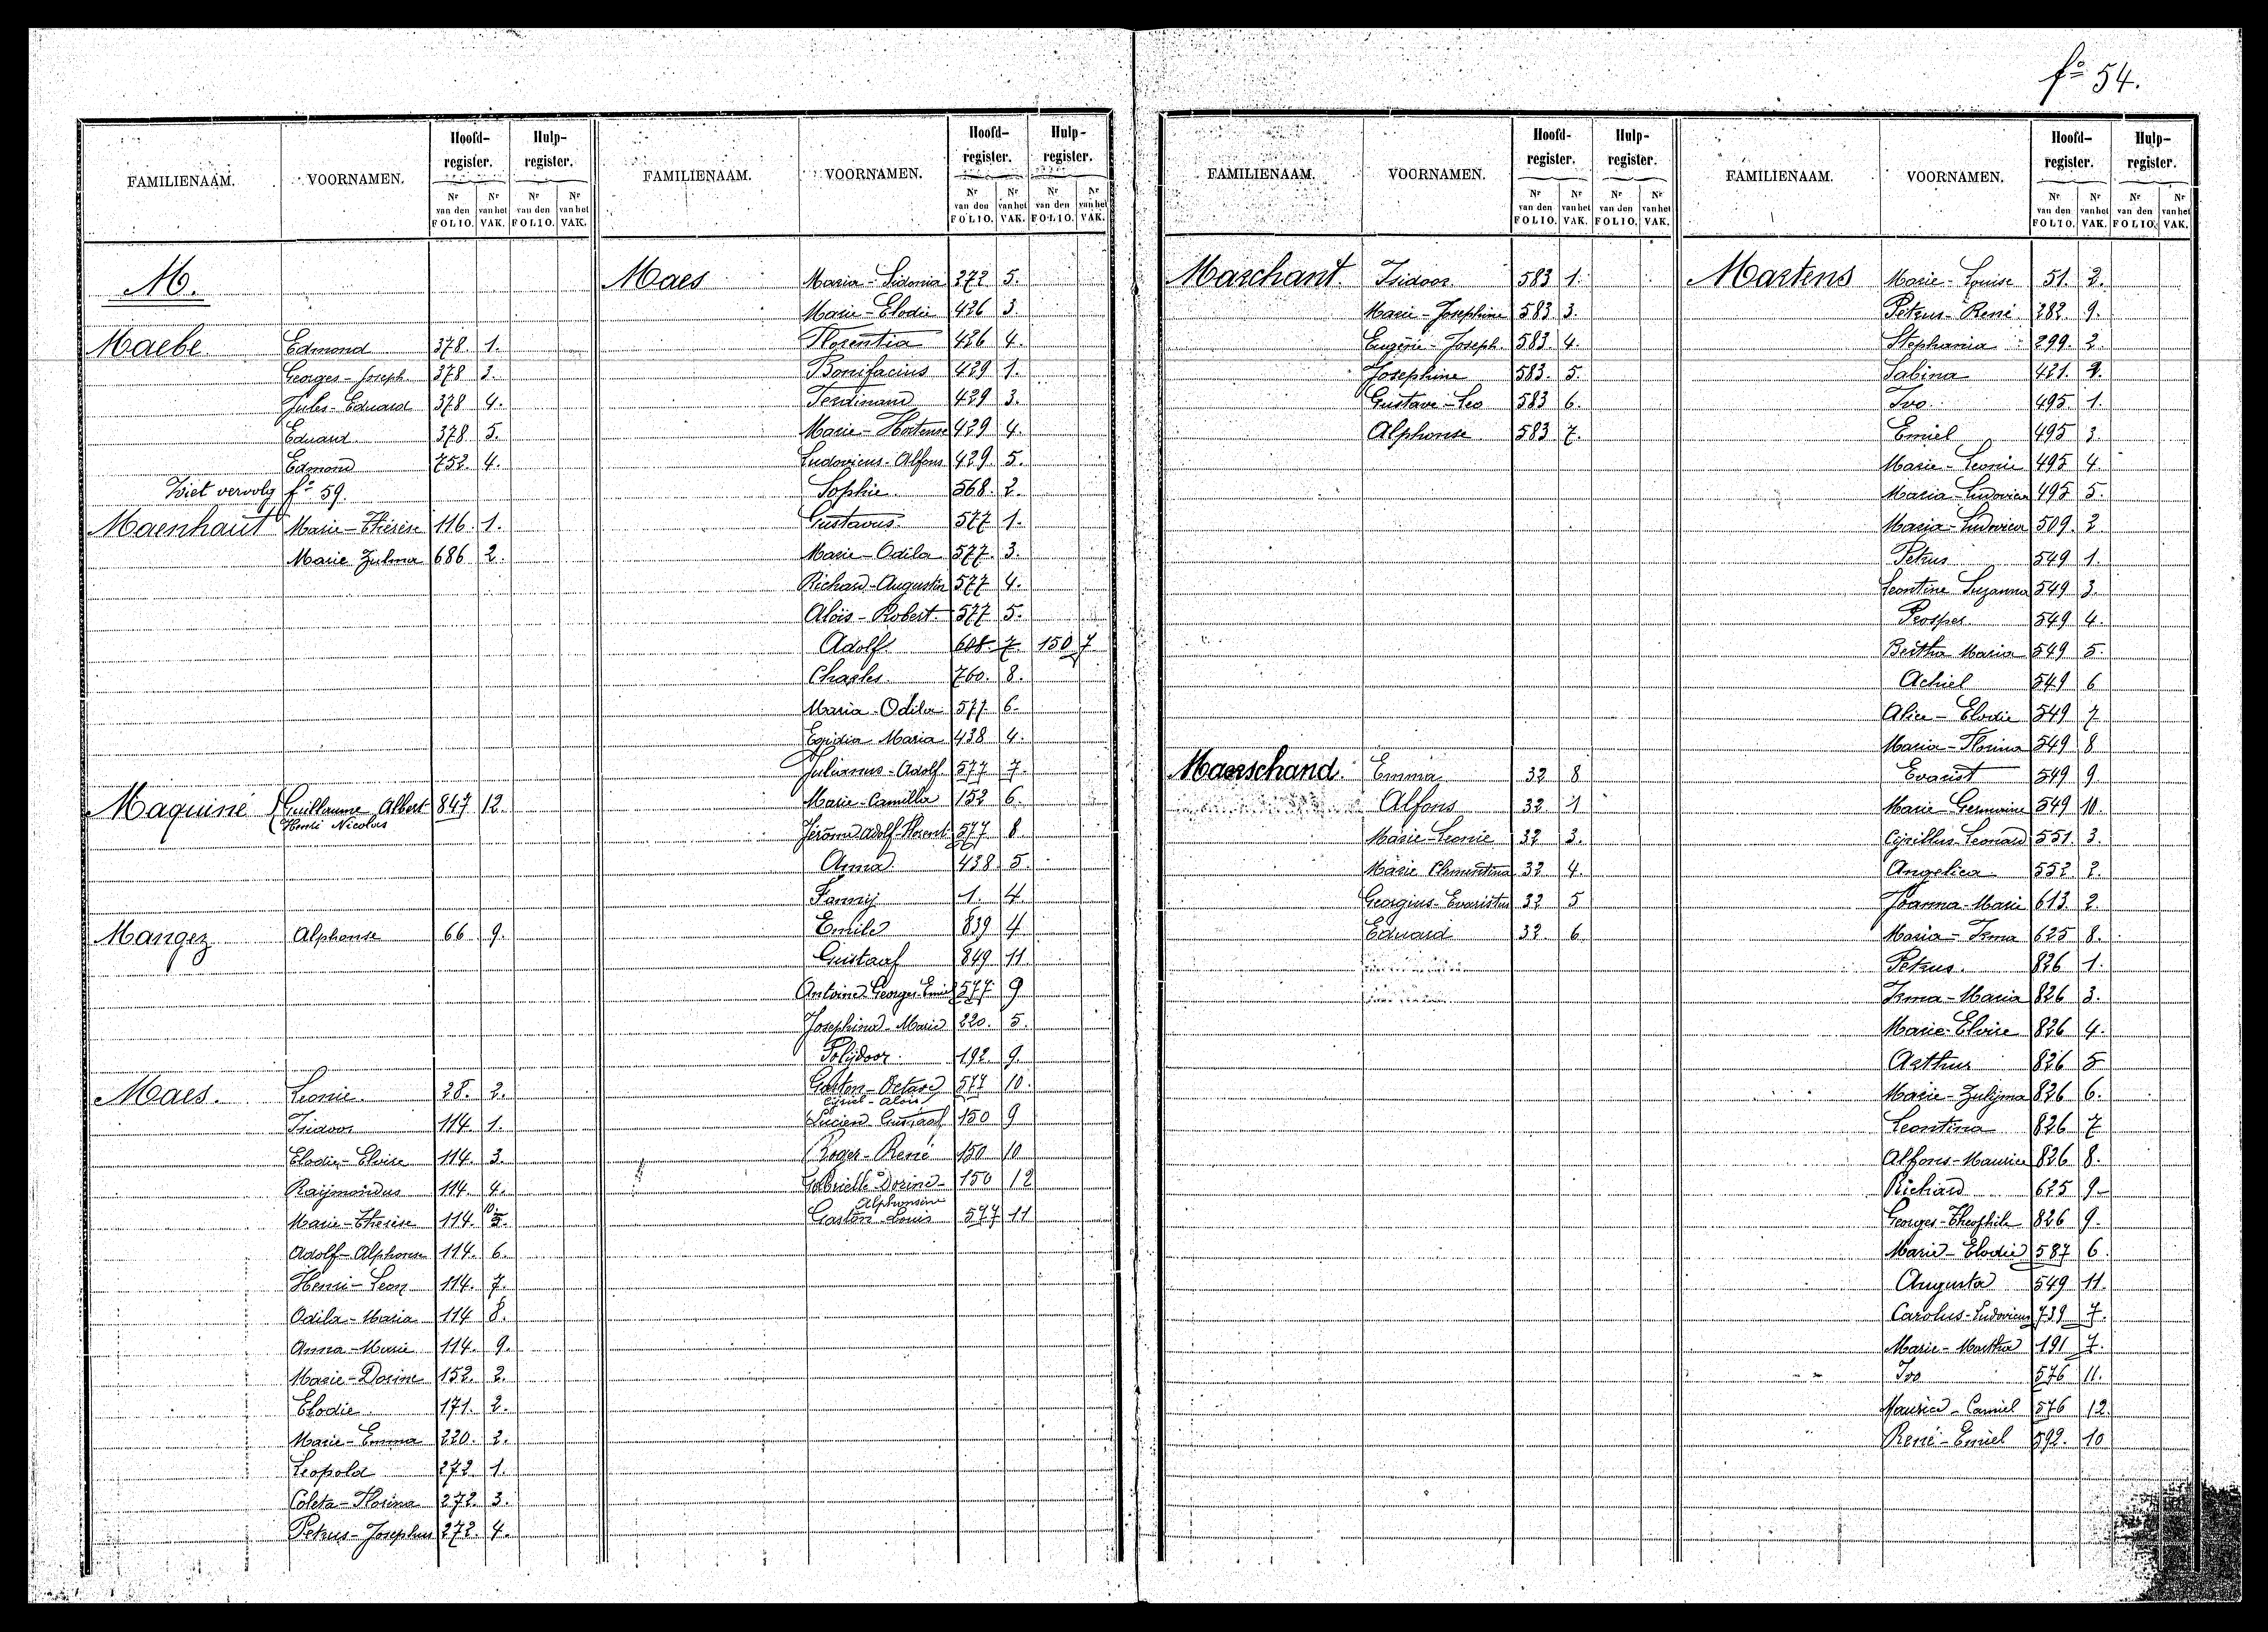 fº 54.
FAMILIENAAM. VOORNAMEN. Hoofd-register. Hulp-register.
Nr van den FOLIO. Nr van het VAK. Nr van den FOLIO. Nr van het VAK.
M.
Maebe Edmond 378. 1.
Georges-Joseph 378 3.
Jules-Eduard 378 4.
Eduard 378 5.
Edmond 752. 4.
Ziet vervolg fº 59.
Maenhaut Marie-Thérèse 116. 1.
Marie Zulma 686 2.
Maquiné Guillaume Albert 847 12.
Henri Nicolas
Mangez Alphonse 66 9.
Maes. Leonie. 28. 2.
Isidoor 114. 1.
Elodie-Elvire 114. 3.
Raijmondus 114. 4.
Marie-Therèse 114. 10 5.
Adolf-Alphonse 114. 6.
Henri-Leon 114. 7.
Odila-Maria 114 8.
Anna-Marie 114. 9.
Marie-Dorine 152. 2.
Elodie 171. 2.
Marie-Emma 220. 2.
Leopold 272 1.
Coleta-Florina 272. 3.
Petrus-Josephus 272. 4.
FAMILIENAAM. VOORNAMEN. Hoofd-register. Hulp-register.
Nr van den FOLIO. Nr van het VAK. Nr van den FOLIO. Nr van het VAK.
Maes Maria-Sidonia 272 5.
Marie-Elodie 426 3.
Florentia 426 4.
Bonifacius 429 1.
Ferdinand 429 3.
Marie-Hortense 429 4.
Ludovicus-Alfons 429. 5.
Sophie 568. 2.
Gustavus 577 1.
Marie-Odila 577. 3.
Richard-Augustin 577 4.
Aloïs-Robert 577 5.
Adolf 608 7 150 7
Charles 760. 8.
Maria-Odila 577 6.
Egidia Maria 438 4.
Julianus-Adolf 577 7.
Marie-Camilla 152 6.
Jérôme Adolf-Florent 577 8
Anna 438. 5.
Fanny 1. 4.
Emile 839 4
Gustaaf 849 11
Antoine Georges Emiel 577 9
Josephina-Marie 220. 5.
Polijdoor 192 9.
Gaston-Octave 577 10.
Cyriel-Aloïs
Lucien Gustaaf 150 9
Roger-René 150 10
Gabrielle Dorine- 150 12
Alphonsine
Gaston-Louis 577 11
FAMILIENAAM. VOORNAMEN. Hoofd-register. Hulp-register.
Nr van den FOLIO. Nr van het VAK. Nr van den FOLIO. Nr van het VAK.
Marchant. Isidoor 583 1.
Marie-Josephine 583 3.
Eugène-Joseph. 583 4.
Josephine 583. 5.
Gustave-Leo 583 6.
Alphonse 583 7.
Maerschand. Emma 32 8
Alfons 32 1
Marie-Leonie 32 3.
Marie Clementina 32 4.
Georgius-Evaristus 32 5
Eduard 32. 6.
FAMILIENAAM. VOORNAMEN. Hoofd-register. Hulp-register.
Nr van den FOLIO. Nr van het VAK. Nr van den FOLIO. Nr van het VAK.
Martens Marie-Louise 51. 2.
Petrus-René 282. 9.
Stephania 299. 2.
Sabina 421. 2.
Ivo 495. 1.
Emiel 495 3.
Marie-Leonie 495 4.
Maria-Ludovica 495 5.
Maria-Ludovica 509. 2.
Petrus 549 1.
Leontine Suzanna 549 3.
Prosper 549 4.
Bertha Maria 549 5.
Achiel 549 6
Alice-Elodie 549 7
Maria-Florina 549 8
Evarist 549 9
Marie-Germaine 549 10.
Cyrillus-Leonard 551. 3.
Angelica 552. 2.
Joanna-Marie 613. 2.
Maria-Irma 625 8.
Petrus. 826 1.
Irma-Maria 826 3.
Marie-Elvire 826 4.
Arthur 826 5
Marie-Zulijma 826 6.
Leontina 826 7
Alfons-Maurice 826 8.
Richard 625 9-
Georges-Theophile 826 9.
Marie-Elodie 587 6.
Augusta 549 11.
Carolus-Ludovicus 739 7.
Marie-Martha 191 7.
Ivo 576 11.
Maurice-Camiel 576 12.
René-Emiel 592. 10